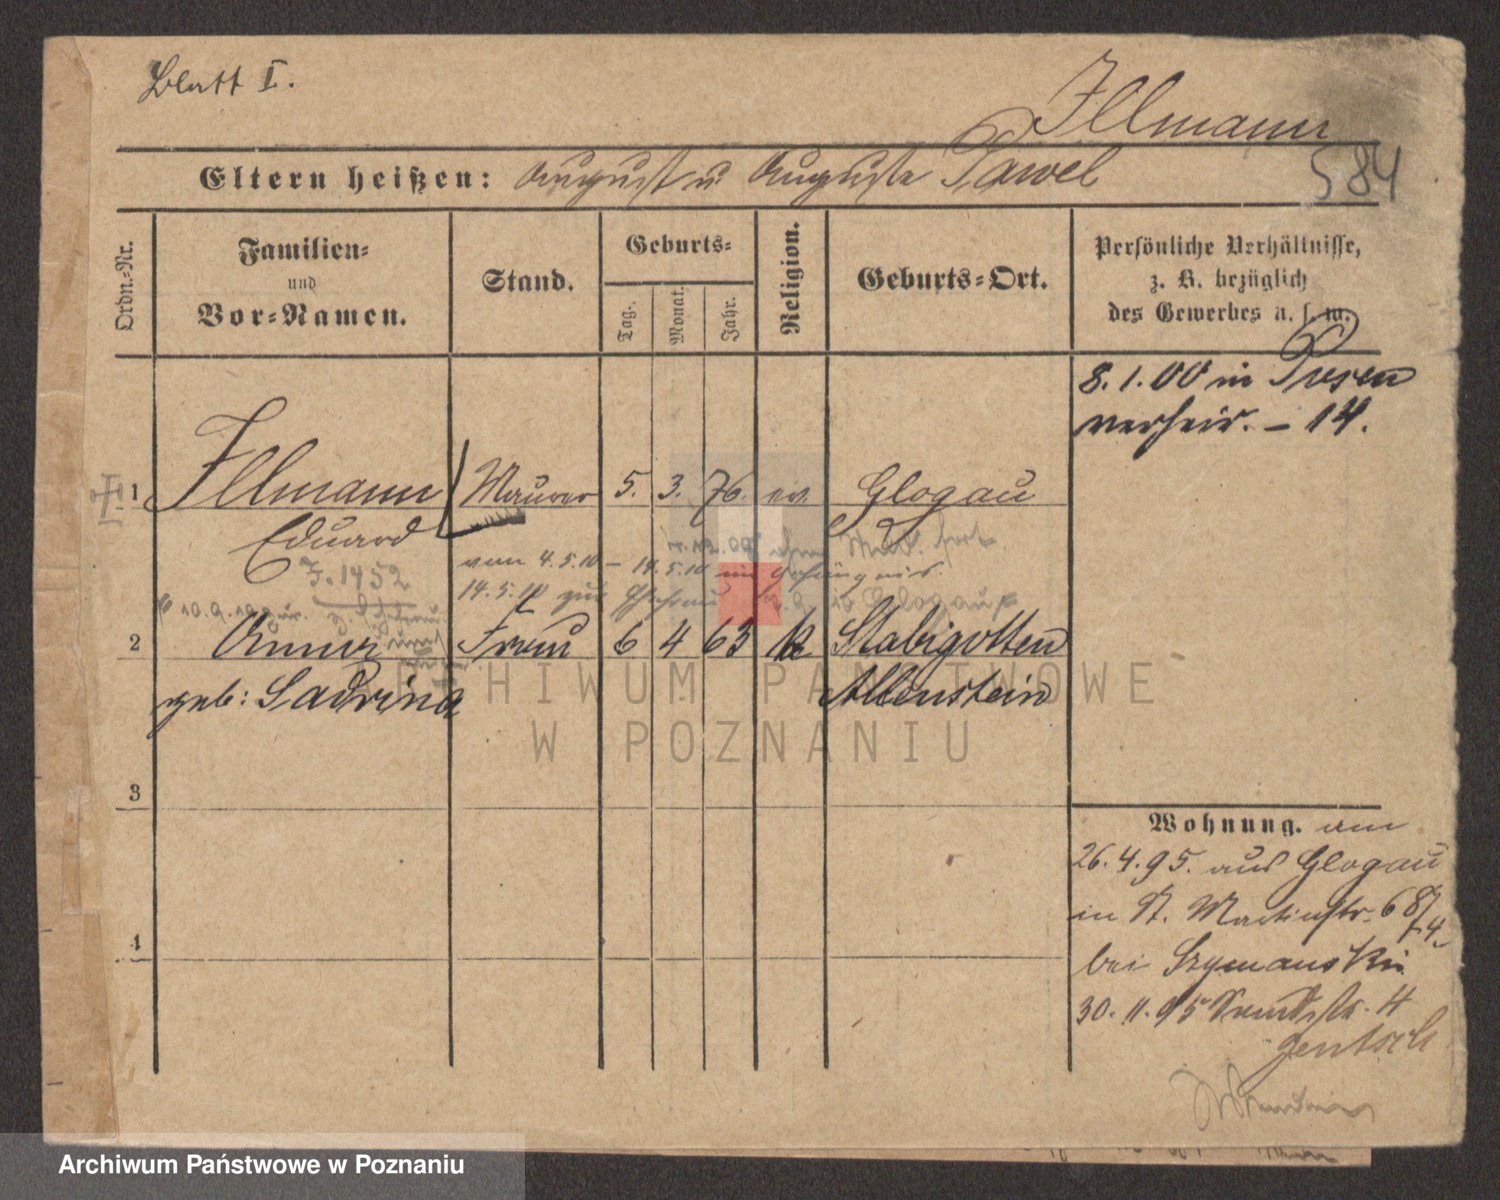 Blatt I.
Illmann
584
Eltern heißen: August u Auguste Pawel
Ordn.-Nr.
Familien-
und
Vor-Namen.
Stand.
Geburts-
Tag.
Monat.
Jahr.
Religion.
Geburts-Ort.
Persönliche Verhältnisse,
z. B. bezüglich
des Gewerbes u. s. w.
8.1.00 in Posen
verheir. - 14.
1 Illmann Maurer 5. 3. 76. ev. Glogau
Eduard
vom 4.5.10 - 14.5.10 im Gefängnis.
14.5.10 zur Ehefrau
F. 1452
2 Anna Frau 6 4 63 k Stabigotten
geb: Sadrina Allenstein
3
4
Wohnung. am
26.4.95. aus Glogau
in St. Martinstr. 68
bei Szymanski
30.11.95 4
Jentsch
ARCHIWUM PAŃSTWOWE
W POZNANIU
Archiwum Państwowe w Poznaniu